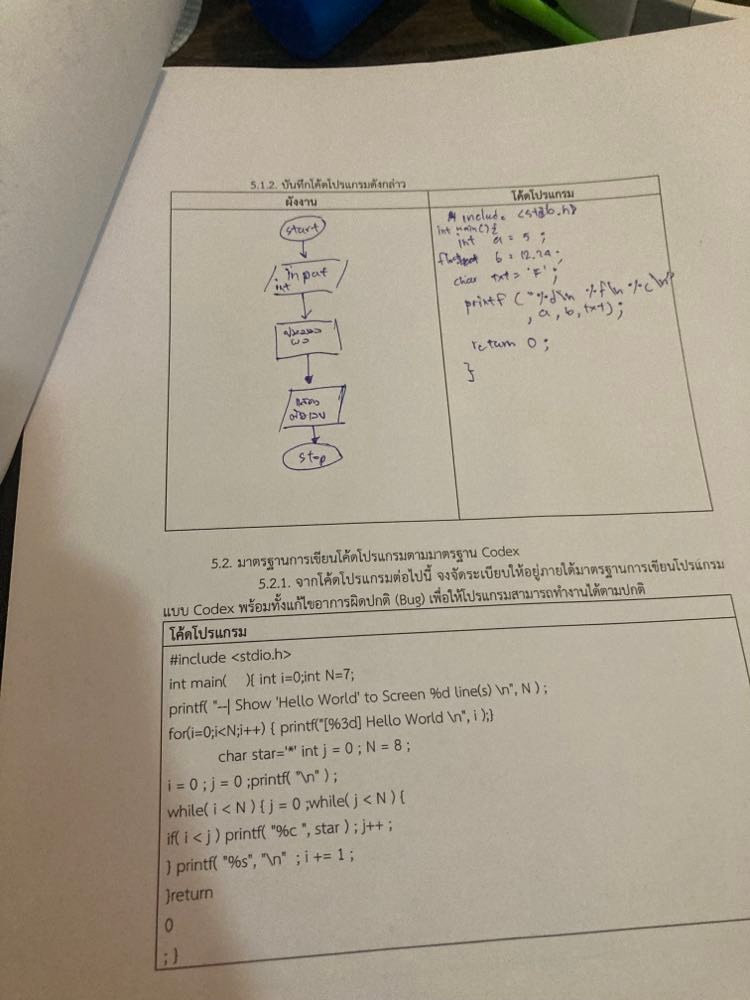 5.1.2. บันทึกโค้ดโปรแกรมดังกล่าว
ผังงาน
โค้ดโปรแกรม
start
int input
stop
# include <stdb.h>
int main(){
int a = 5 ;
float b = 12.24 ;
char txt = 'F' ;
printf ("%d\n %f\n %c\n"
, a, b, txt) ;
return 0 ;
}
5.2. มาตรฐานการเขียนโค้ดโปรแกรมตามมาตรฐาน Codex
5.2.1. จากโค้ดโปรแกรมต่อไปนี้ จงจัดระเบียบให้อยู่ภายใต้มาตรฐานการเขียนโปรแกรม
แบบ Codex พร้อมทั้งแก้ไขอาการผิดปกติ (Bug) เพื่อให้โปรแกรมสามารถทำงานได้ตามปกติ
โค้ดโปรแกรม
#include <stdio.h>
int main( ){ int i=0;int N=7;
printf( "--| Show 'Hello World' to Screen %d line(s) \n", N ) ;
for(i=0;i<N;i++) { printf("[%3d] Hello World \n", i );}
char star='*' int j = 0 ; N = 8 ;
i = 0 ; j = 0 ;printf( "\n" ) ;
while( i < N ) { j = 0 ;while( j < N ) {
if( i < j ) printf( "%c ", star ) ; j++ ;
} printf( "%s", "\n" ; i += 1 ;
}return
0
; }